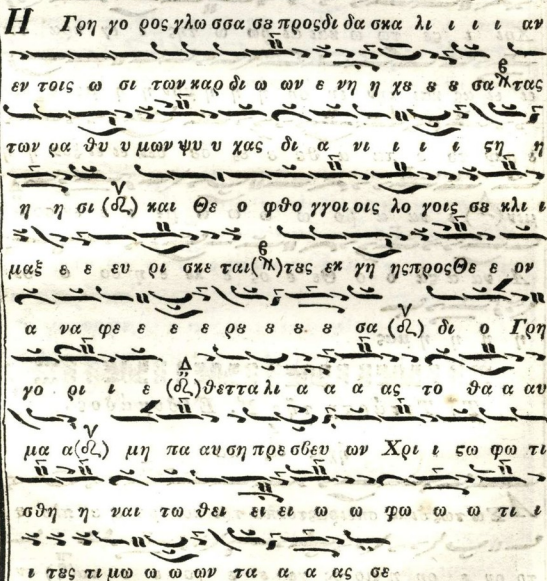 Η Γρη γο ρος γλω σσα σȣ προς δι δα σκα λι ι ι ι αν
εν τοις ω σι των καρ δι ω ων ε νη η χε ȣ ȣ σα τας
των ρα θυ υ μων ψυ υ χας δι α νι ι ι ι ςη η
η η σι και Θε ο φθο γγοι οις λο γοις σȣ κλι ι
μαξ ε ε ευ ρι σκε ται τȣς εκ γη ης προς Θε ε ον
α να φε ε ε ε ρε ȣ ȣ ȣ σα δι ο Γρη
γο ρι ι ε θεττα λι α α α ας το θα α αυ
μα α μη πα αυ ση πρε σβευ ων Χρι ι ςω φω τι
σθη η ναι τω θει ει ει ω ω φω ω ω τι ι
ι τȣς τι μω ω ω ων τα α α ας σε